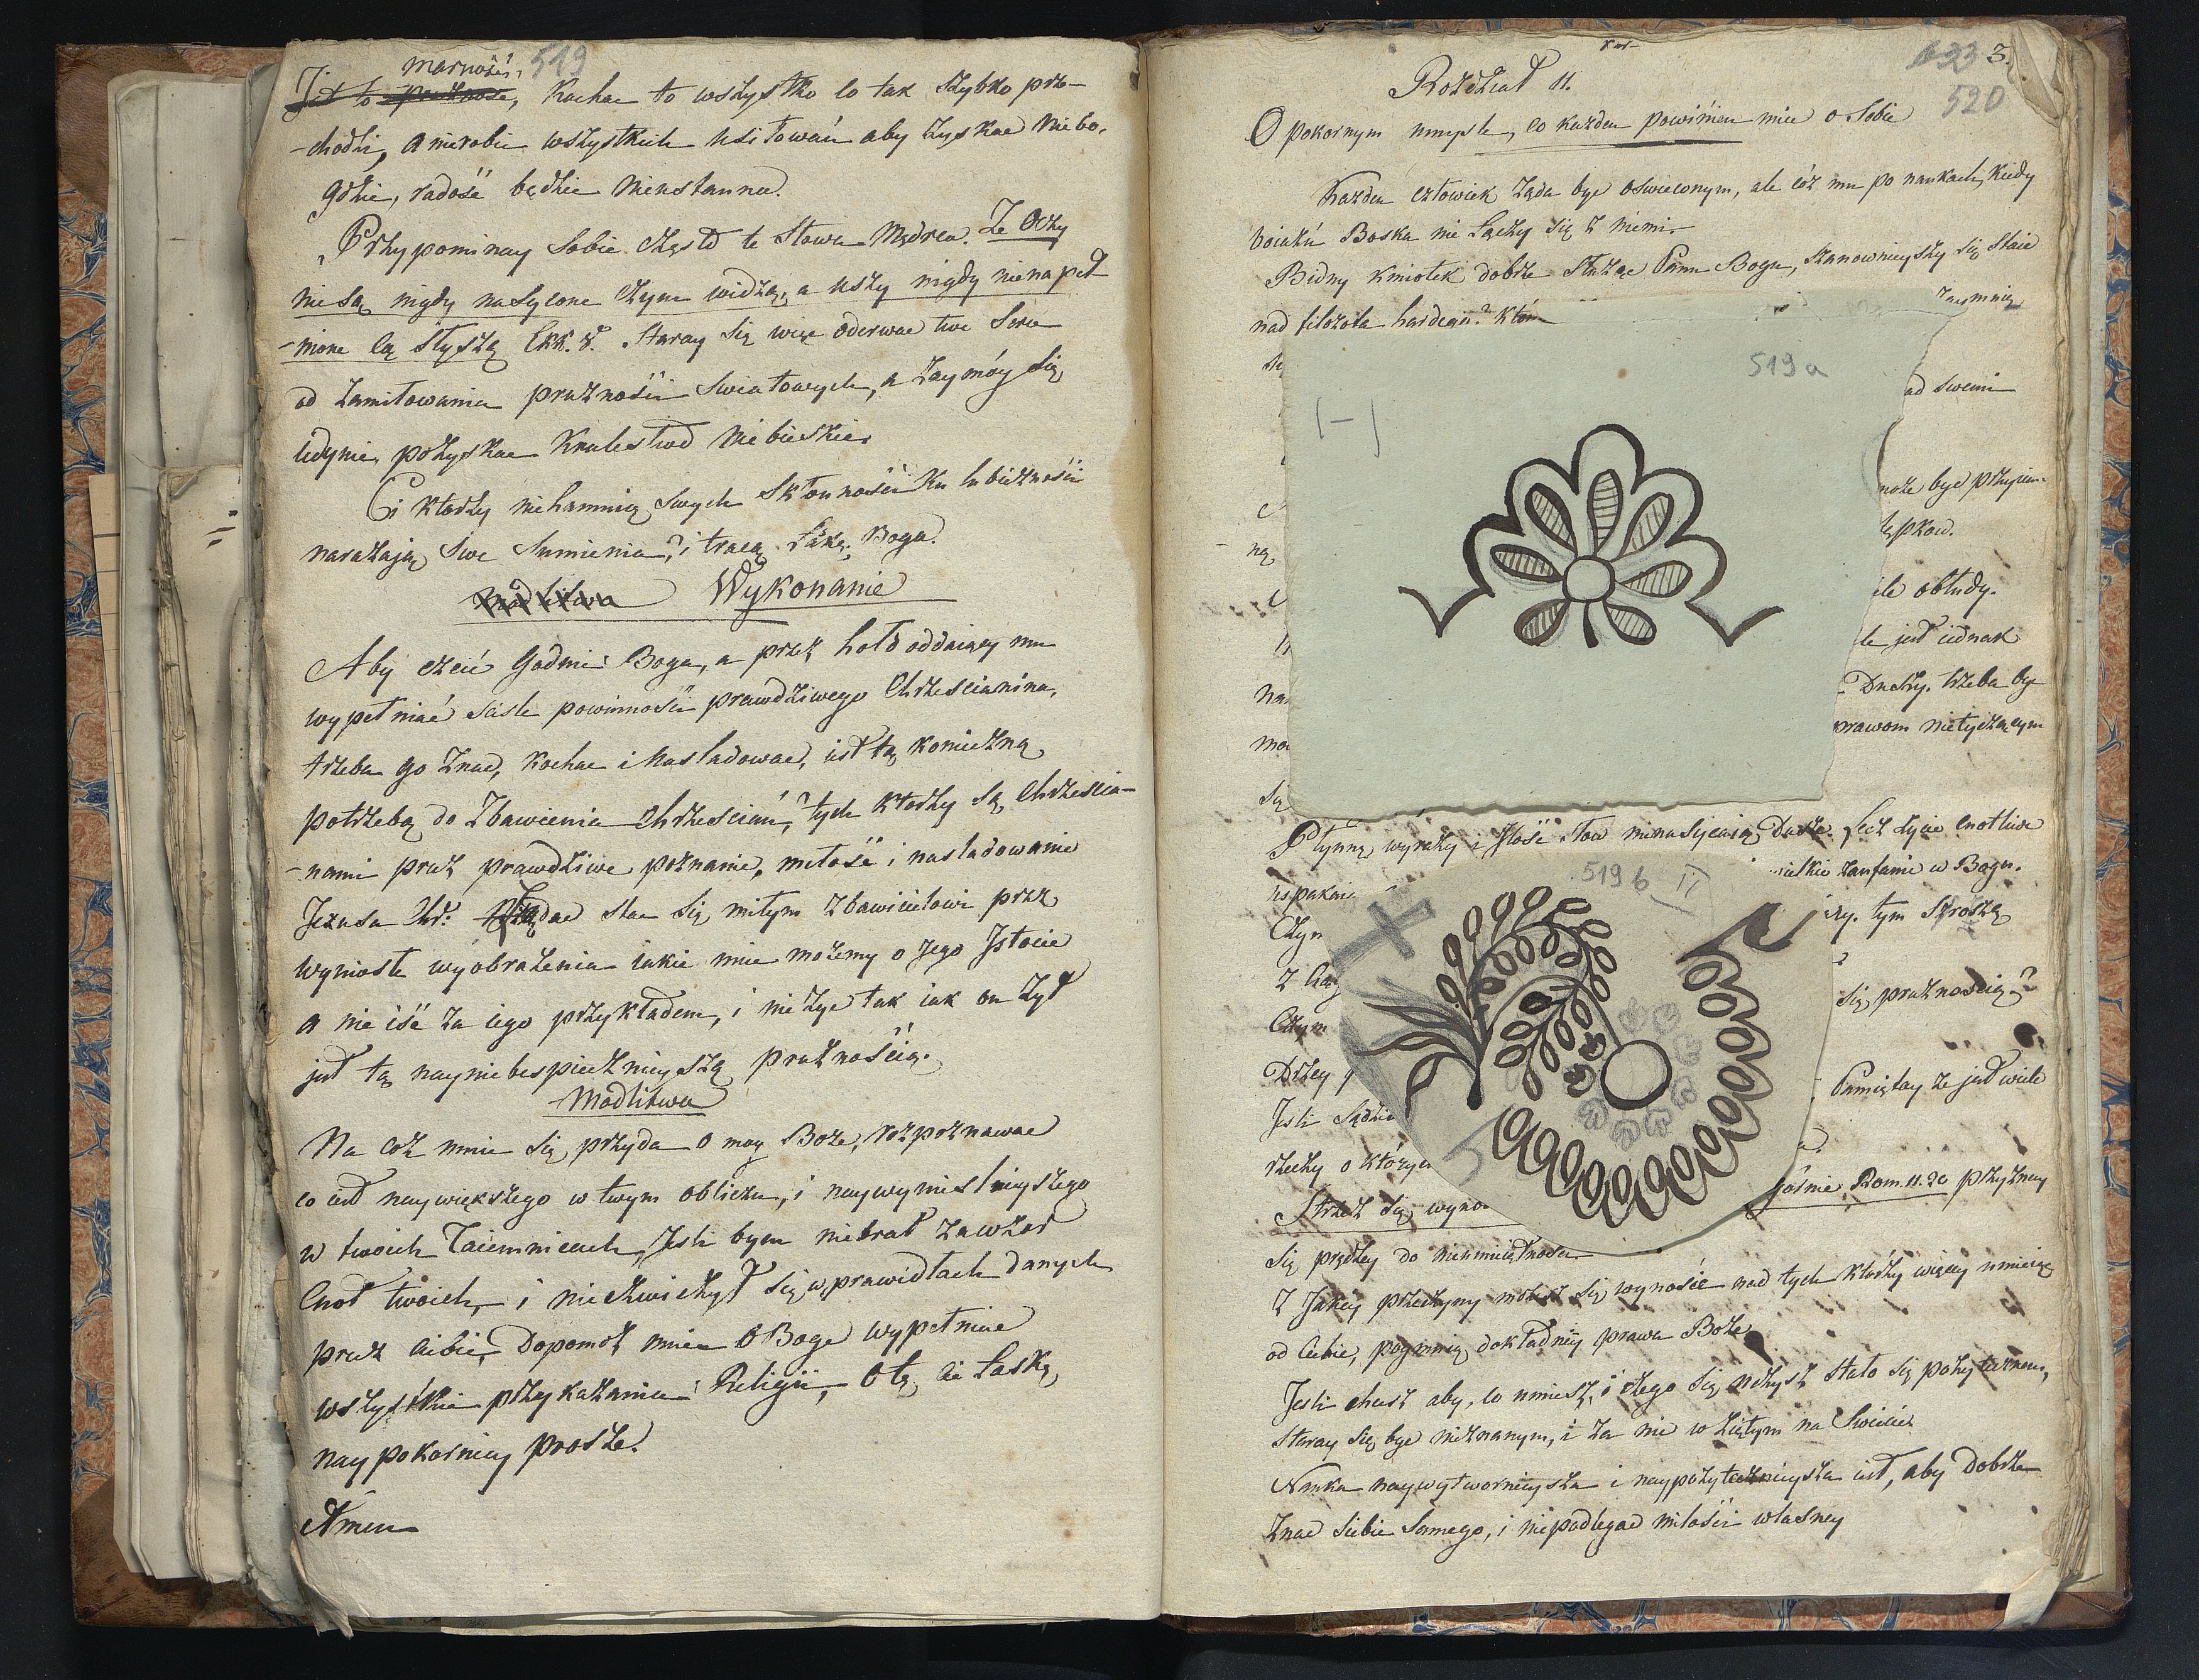 519
marność,
Jest to próżność, Kochać to wszystko co tak szybko prze-
-chodzi, a nierobić wszystkich usiłowań aby zyskać Niebo,
gdzie, radość będzie Nieustanna.
Przypominay sobie często te słowa Mędrca. Że Oczy
nie są nigdy nasycone czym widzą, a uszy nigdy nienapeł
-nione co słyszą Ekk. 8. Staray się więc oderwać twe serce
od zamiłowania prużności światowych, a zaymóy się
iedynie pozyskać Krulestwo Niebieskie.
Ci ktorzy niehamuią swych skłonności ku lubieżności
narażają swe sumienia, i tracą Łaskę Boga.
Modlitwa Wykonanie
Aby czcić godnie Boga, a przez hołd oddaiący mu
wypełniać ściśle powinności prawdziwego Chrześcianina,
trzeba go znać, kochać i nasladować, iest tą konieczną
potrzebą do Zbawienia chrześcian, tych ktorzy są Chrześcia-
-nami przez prawdziwe poznanie, miłość i nasladowanie
Jezusa Chr: Żądać stać się miłym Zbawicielowi przez
wyniosłe wyobrażenia iakie mieć możemy o Jego Istocie
a nie iść za iego przykładem, i nie żyć tak iak on żył
jest tą nayniebespiecznieyszą prużnością.
Modlitwa
Na coż mnie się przyda o moy Boże, rozpoznawać
co iest naywiększego w twym obliczu, i naywymislnieyszego
w twoich Taiemnicach, Jesli bym niebrał zawzor
Cnot twoich, i niećwiczył się w prawidłach danych
przez ciebie, Dopomoż mnie o Boże wypełniać
wszystkie przykazania Religii, o tę cie Łaskę
naypokorniey proszę.
Amen
3.
520
Rozdział II.
O pokornym umyśle, co każden powinien mieć o sobie
Każden człowiek żąda być oświeconym, ale cóż mu po naukach, kiedy
boiaźń Boska nie łączy się z niemi.
Bidny kmiotek dobrze służąc Panu Bogu, szanownieyszy się staie
nad filozofa hardego?
519 a
ad swemi
może być przyiem-
obłudy.
le jest iednak
Duszy. trzeba by
prawom nietyczącym
się
Płynne wyrazy i ilość słow nienasycaią Duszę. Lecz życie cnotliwe
uspakaia
wielkie zaufanie w Bogu.
519 b II
Czym
tym sroższą
się prużnością?
Czym
Drżey
Pamiętay że jest wiele
Jesli sądzisz
rzeczy o których
Strzeż się wyno
Rom. 11. 20 przyznay
się prędzey do nieumieiętności
Z Jakiey przyczyny możesz się wynosić nad tych którzy więcey umieią
od Ciebie, poymuią dokładniey prawa Boże
Jesli chcesz aby, co umiesz, i czego się uczysz stało się pożytecznem,
staray się być nieznanym, i za nic w ziętym na Świecie.
Nauka naywytwornieysza i naypożytecznieysza iest, aby dobrze
znać siebie samego, i niepodlegać miłości własney